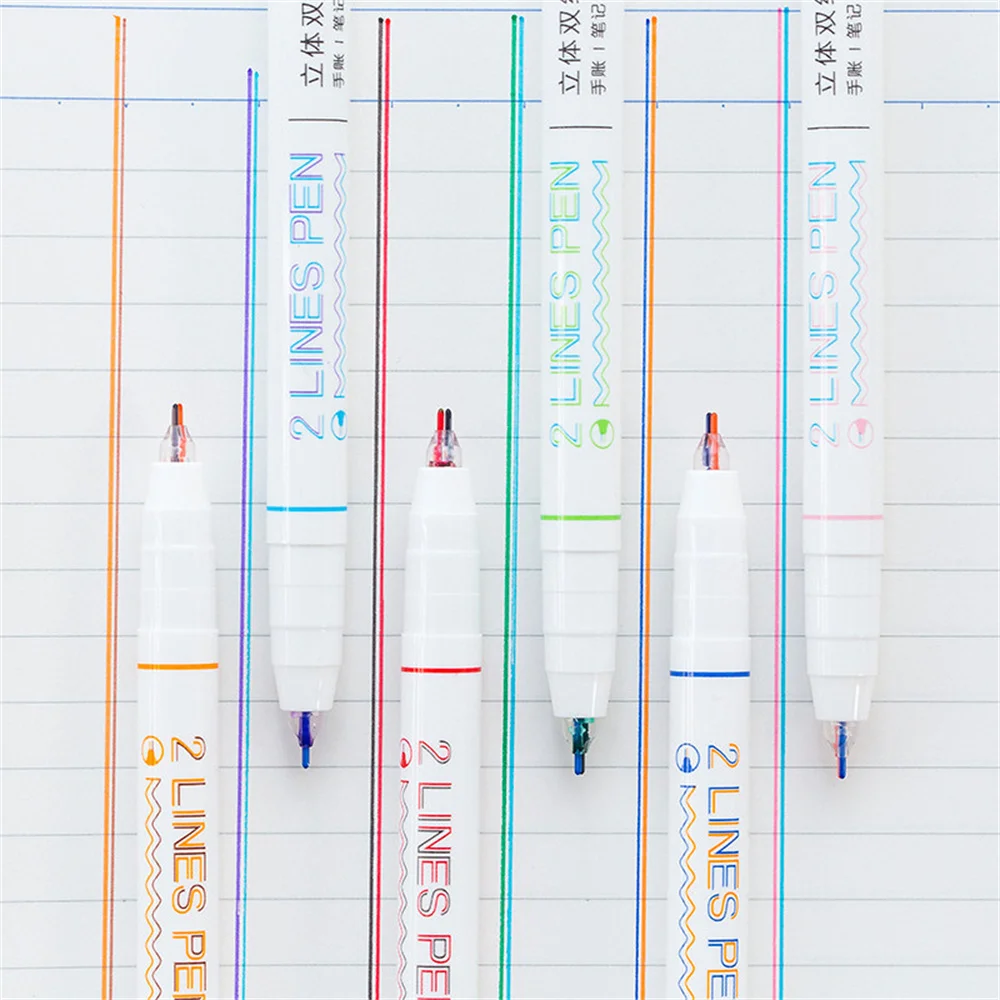 立体双
手账 I 笔记
2 LINES PEN
立体双
手账 I 笔记
2 LINES PEN
立体双
手账 I 笔记
2 LINES PEN
2 LINES PEN
2 LINES PEN
2 LINES PE